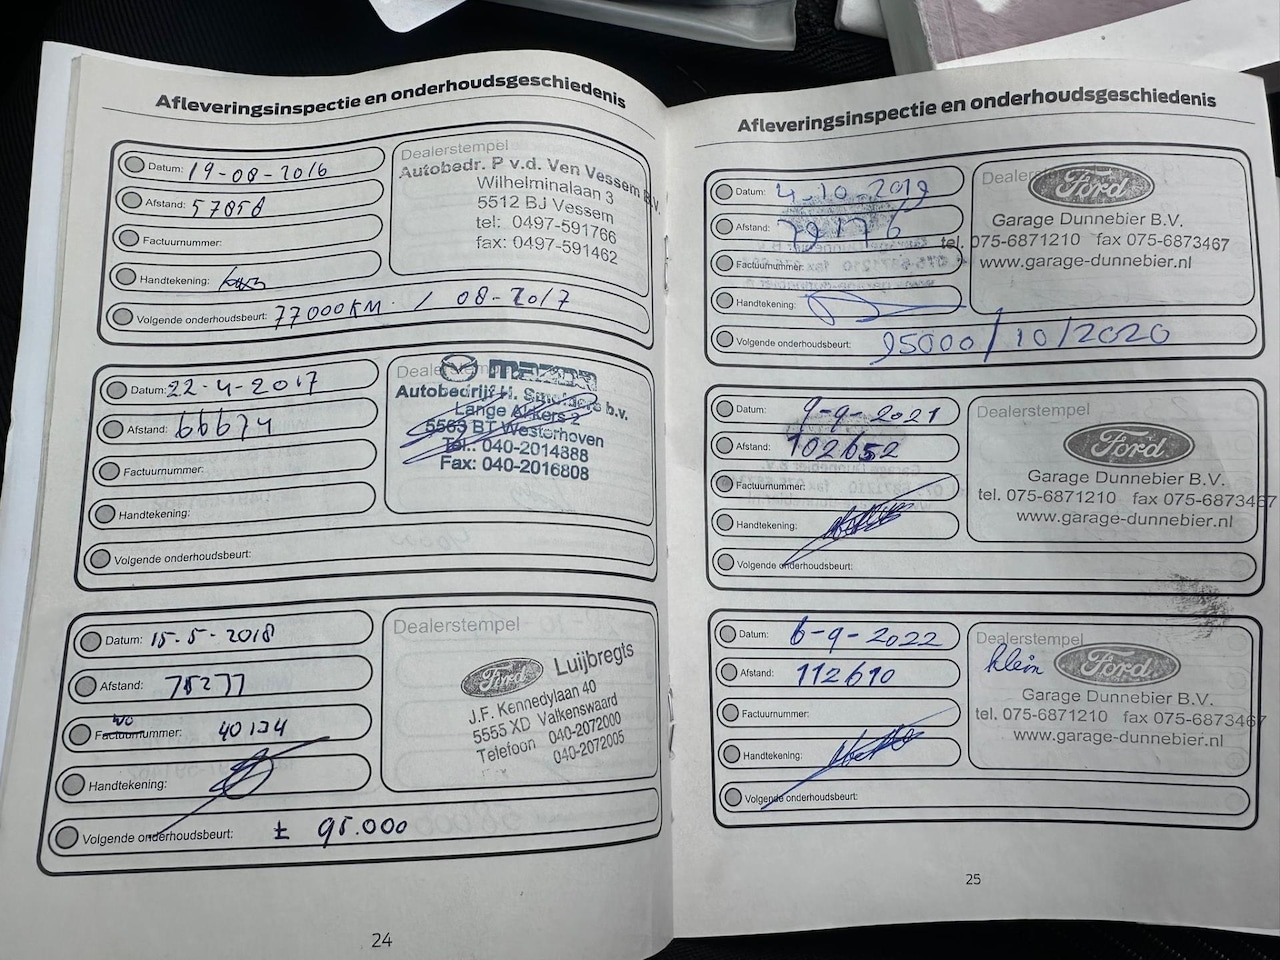 Afleveringsinspectie en onderhoudsgeschiedenis
Datum: 19-08-2016
Afstand: 57858
Factuurnummer:
Handtekening:
Volgende onderhoudsbeurt: 77000KM / 08-2017
Dealerstempel
Autobedr. P v.d. Ven Vessem B.V.
Wilhelminalaan 3
5512 BJ Vessem
tel: 0497-591766
fax: 0497-591462
Datum: 22-4-2017
Afstand: 66674
Factuurnummer:
Handtekening:
Volgende onderhoudsbeurt:
Dealerstempel
mazda
Autobedrijf H. Smolders b.v.
Lange Akkers 2
5563 BT Westerhoven
Tel.: 040-2014888
Fax: 040-2016808
Datum: 15-5-2018
Afstand: 75277
WO
Factuurnummer: 40134
Handtekening:
Volgende onderhoudsbeurt: ± 95.000
Dealerstempel
Ford Luijbregts
J.F. Kennedylaan 40
5555 XD Valkenswaard
Telefoon 040-2072000
040-2072005
24
Afleveringsinspectie en onderhoudsgeschiedenis
Datum: 4-10-2019
Afstand:
Factuurnummer:
Handtekening:
Volgende onderhoudsbeurt: 95000/10/2020
Dealerstempel
Ford
Garage Dunnebier B.V.
tel. 075-6871210 fax 075-6873467
www.garage-dunnebier.nl
Datum: 9-9-2021
Afstand: 102652
Factuurnummer:
Handtekening:
Volgende onderhoudsbeurt:
Dealerstempel
Ford
Garage Dunnebier B.V.
tel. 075-6871210 fax 075-6873467
www.garage-dunnebier.nl
Datum: 6-9-2022
Afstand: 112610
Factuurnummer:
Handtekening:
Volgende onderhoudsbeurt:
Dealerstempel
klein Ford
Garage Dunnebier B.V.
tel. 075-6871210 fax 075-6873467
www.garage-dunnebier.nl
25